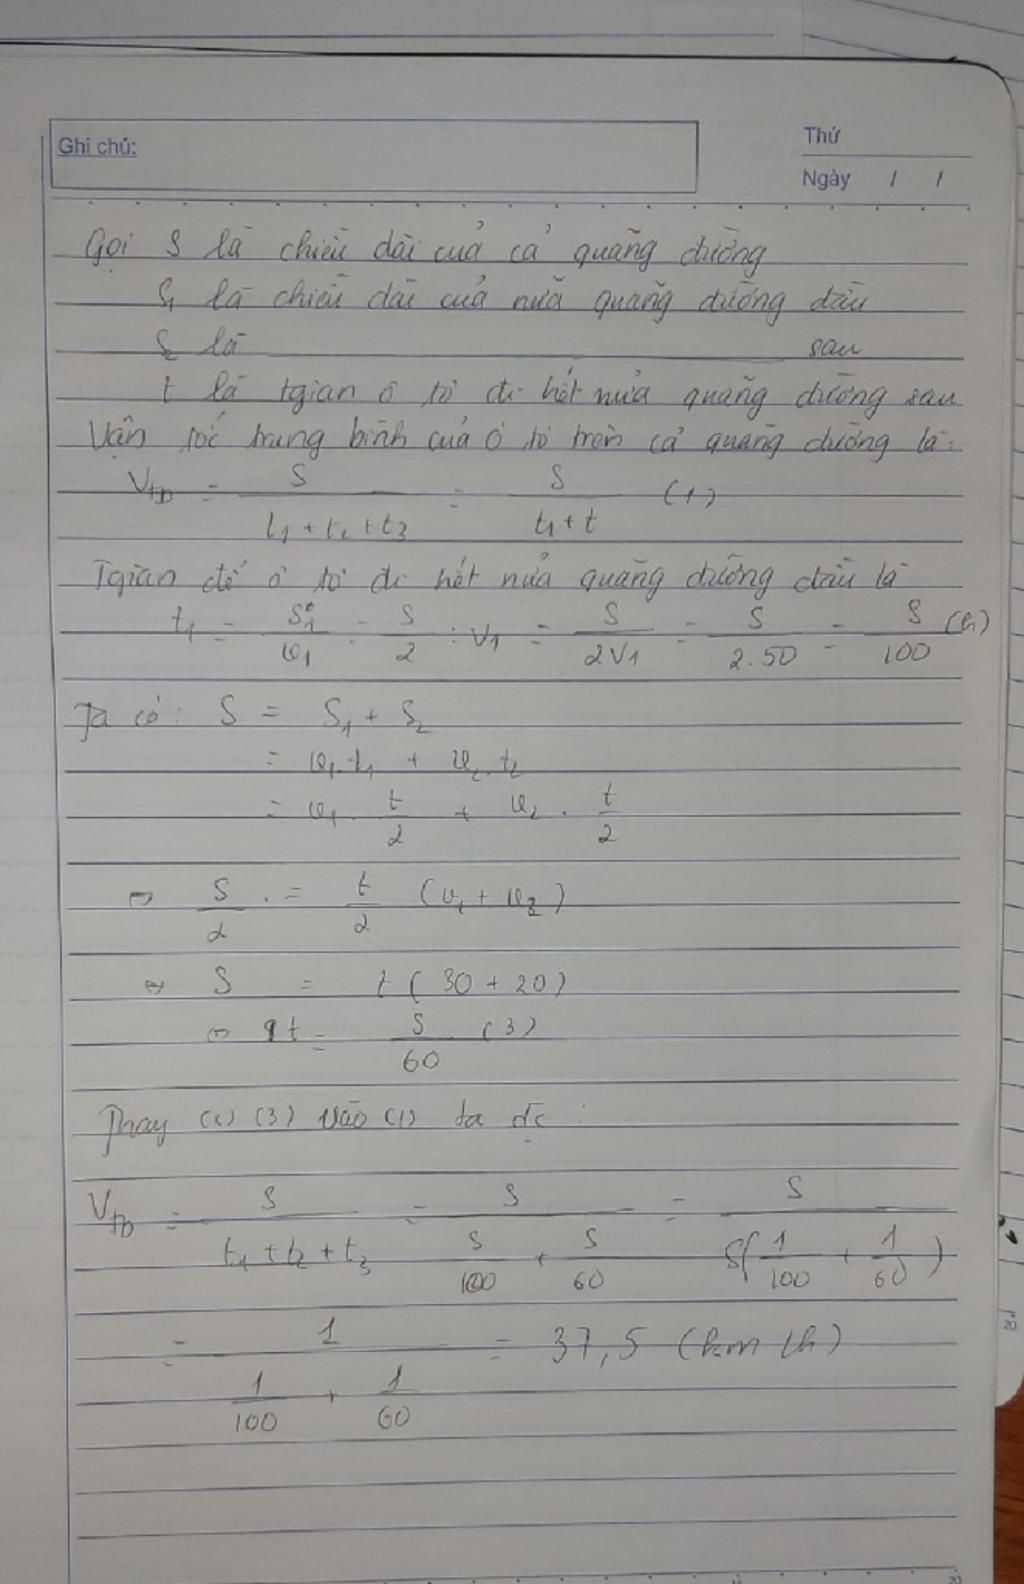 Ghi chú:
Thứ
Ngày / /
Gọi S là chiều dài của cả quãng đường
S₁ là chiều dài của nửa quãng đường đầu
S₂ là sau
t là tgian ô tô đi hết nửa quãng đường sau
Vận tốc trung bình của ô tô trên cả quãng đường là:
Vtb = S / (t₁ + t₂ + t₃) = S / (t₁ + t) (1)
Tgian để ô tô đi hết nửa quãng đường đầu là
t₁ = S₁ / v₁ = S / 2 : V₁ = S / 2V₁ = S / 2.50 = S / 100 (h)
Ta có: S = S₁ + S₂
= v₁.t₁ + v₂.t₂
= v₁ . t/2 + v₂ . t/2
⇔ S/2 . = t/2 (v₁ + v₂)
⇔ S = t (30 + 20)
⇔ t = S/60 (3)
Thay (2) (3) vào (1) ta đc :
Vtb = S / (t₁ + t₂ + t₃) = S / (S/100 + S/60) = S / S(1/100 + 1/60)
= 1 / (1/100 + 1/60) = 37,5 (km/h)
20